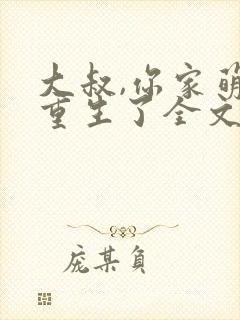 大叔,你家萌
重生了全文
庞某负